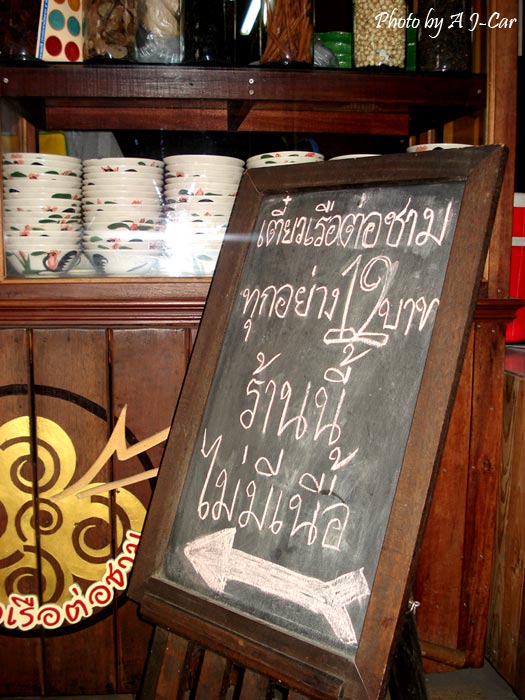 Photo by A J-Car
เตี๋ยวเรือต่อชาม
ทุกอย่าง 12 บาท
ร้านนี้
ไม่มีเนื้อ
เรือต่อชาม